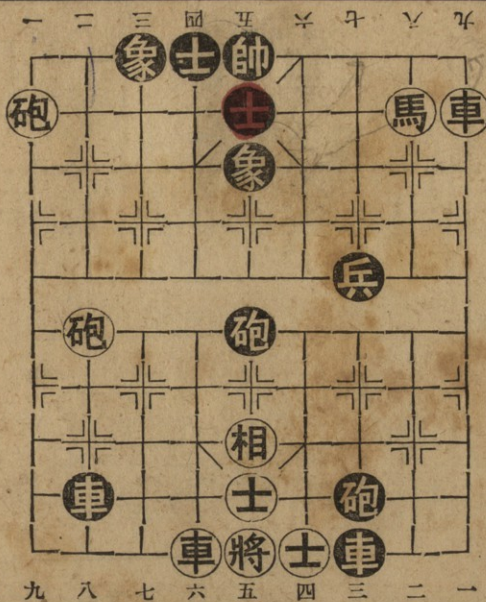 一 二 三 四 五 六 七 八 九
象 士 帥
砲 士 馬 車
象
兵
砲 砲
相
車 士 砲
車 將 士 車
九 八 七 六 五 四 三 二 一